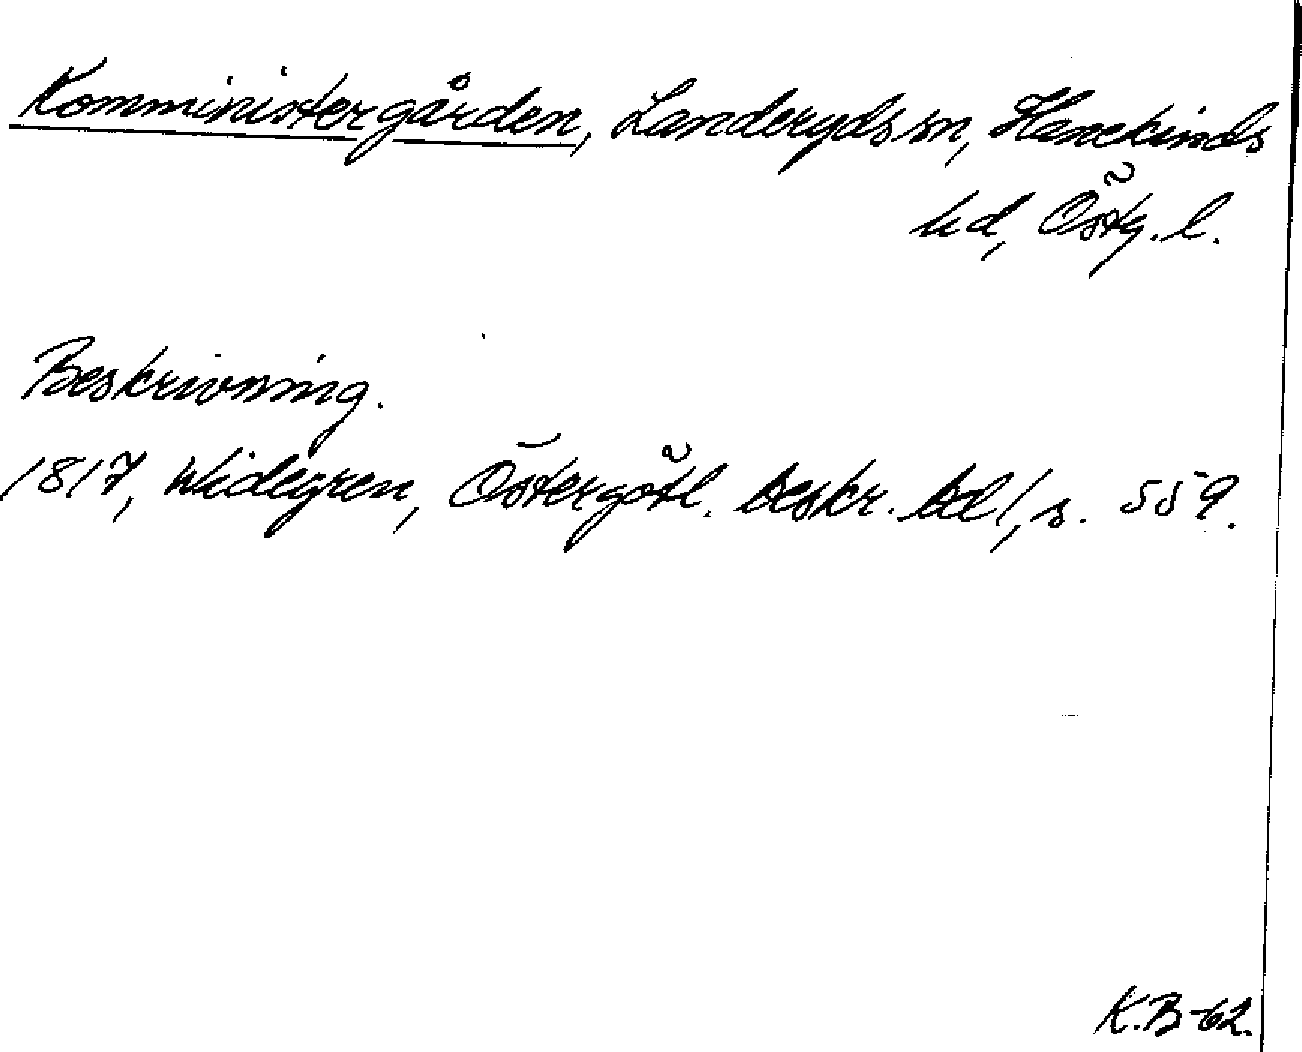 Komministergården, Landeryds sn, Hanekinds
hd, Östg. l.
Beskrivning.
1817, Widegren, Östergötl. beskr. bd 1, s. 559.
K.B-62.